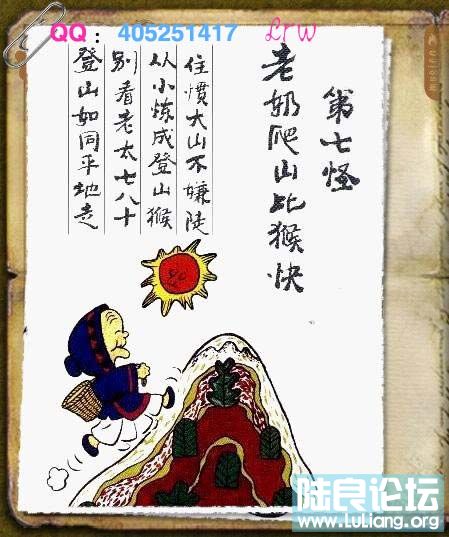 QQ：405251417 LrW
第七怪
老奶爬山比猴快
住惯大山不嫌陡
从小炼成登山猴
别看老太七八十
登山如同平地走
陆良论坛
www.Luliang.org